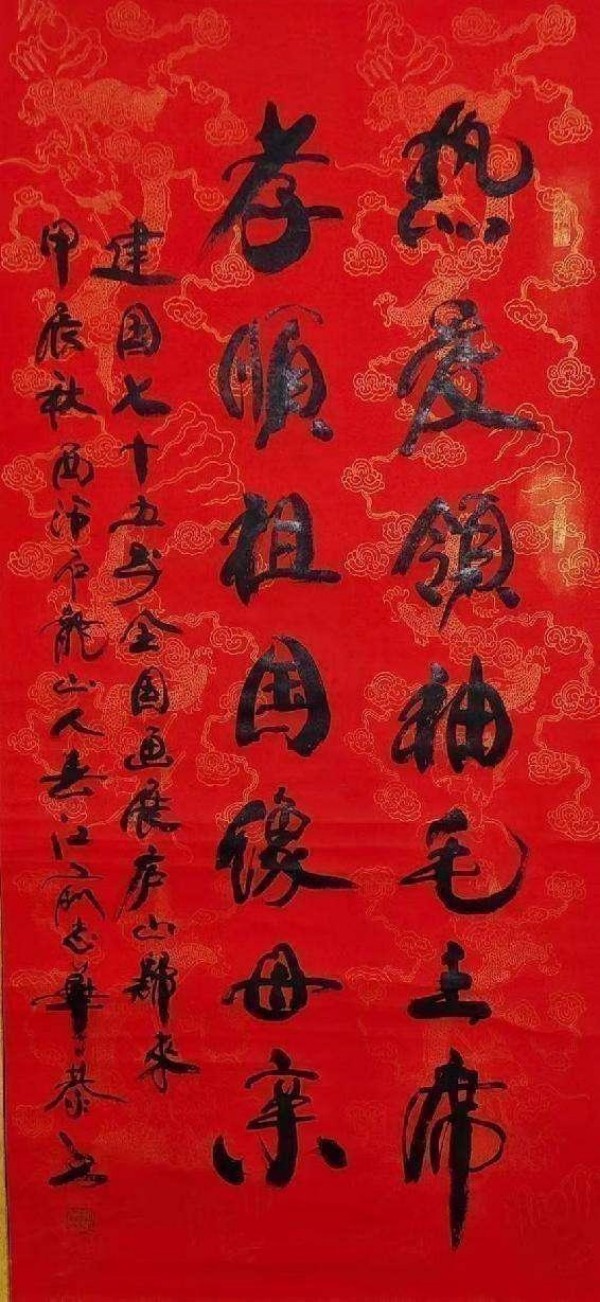 热爱领袖毛主席
孝顺祖国像母亲
建国七十五岁全国画展庐山归来
甲辰秋西沛石龙山人长江俞志华恭书